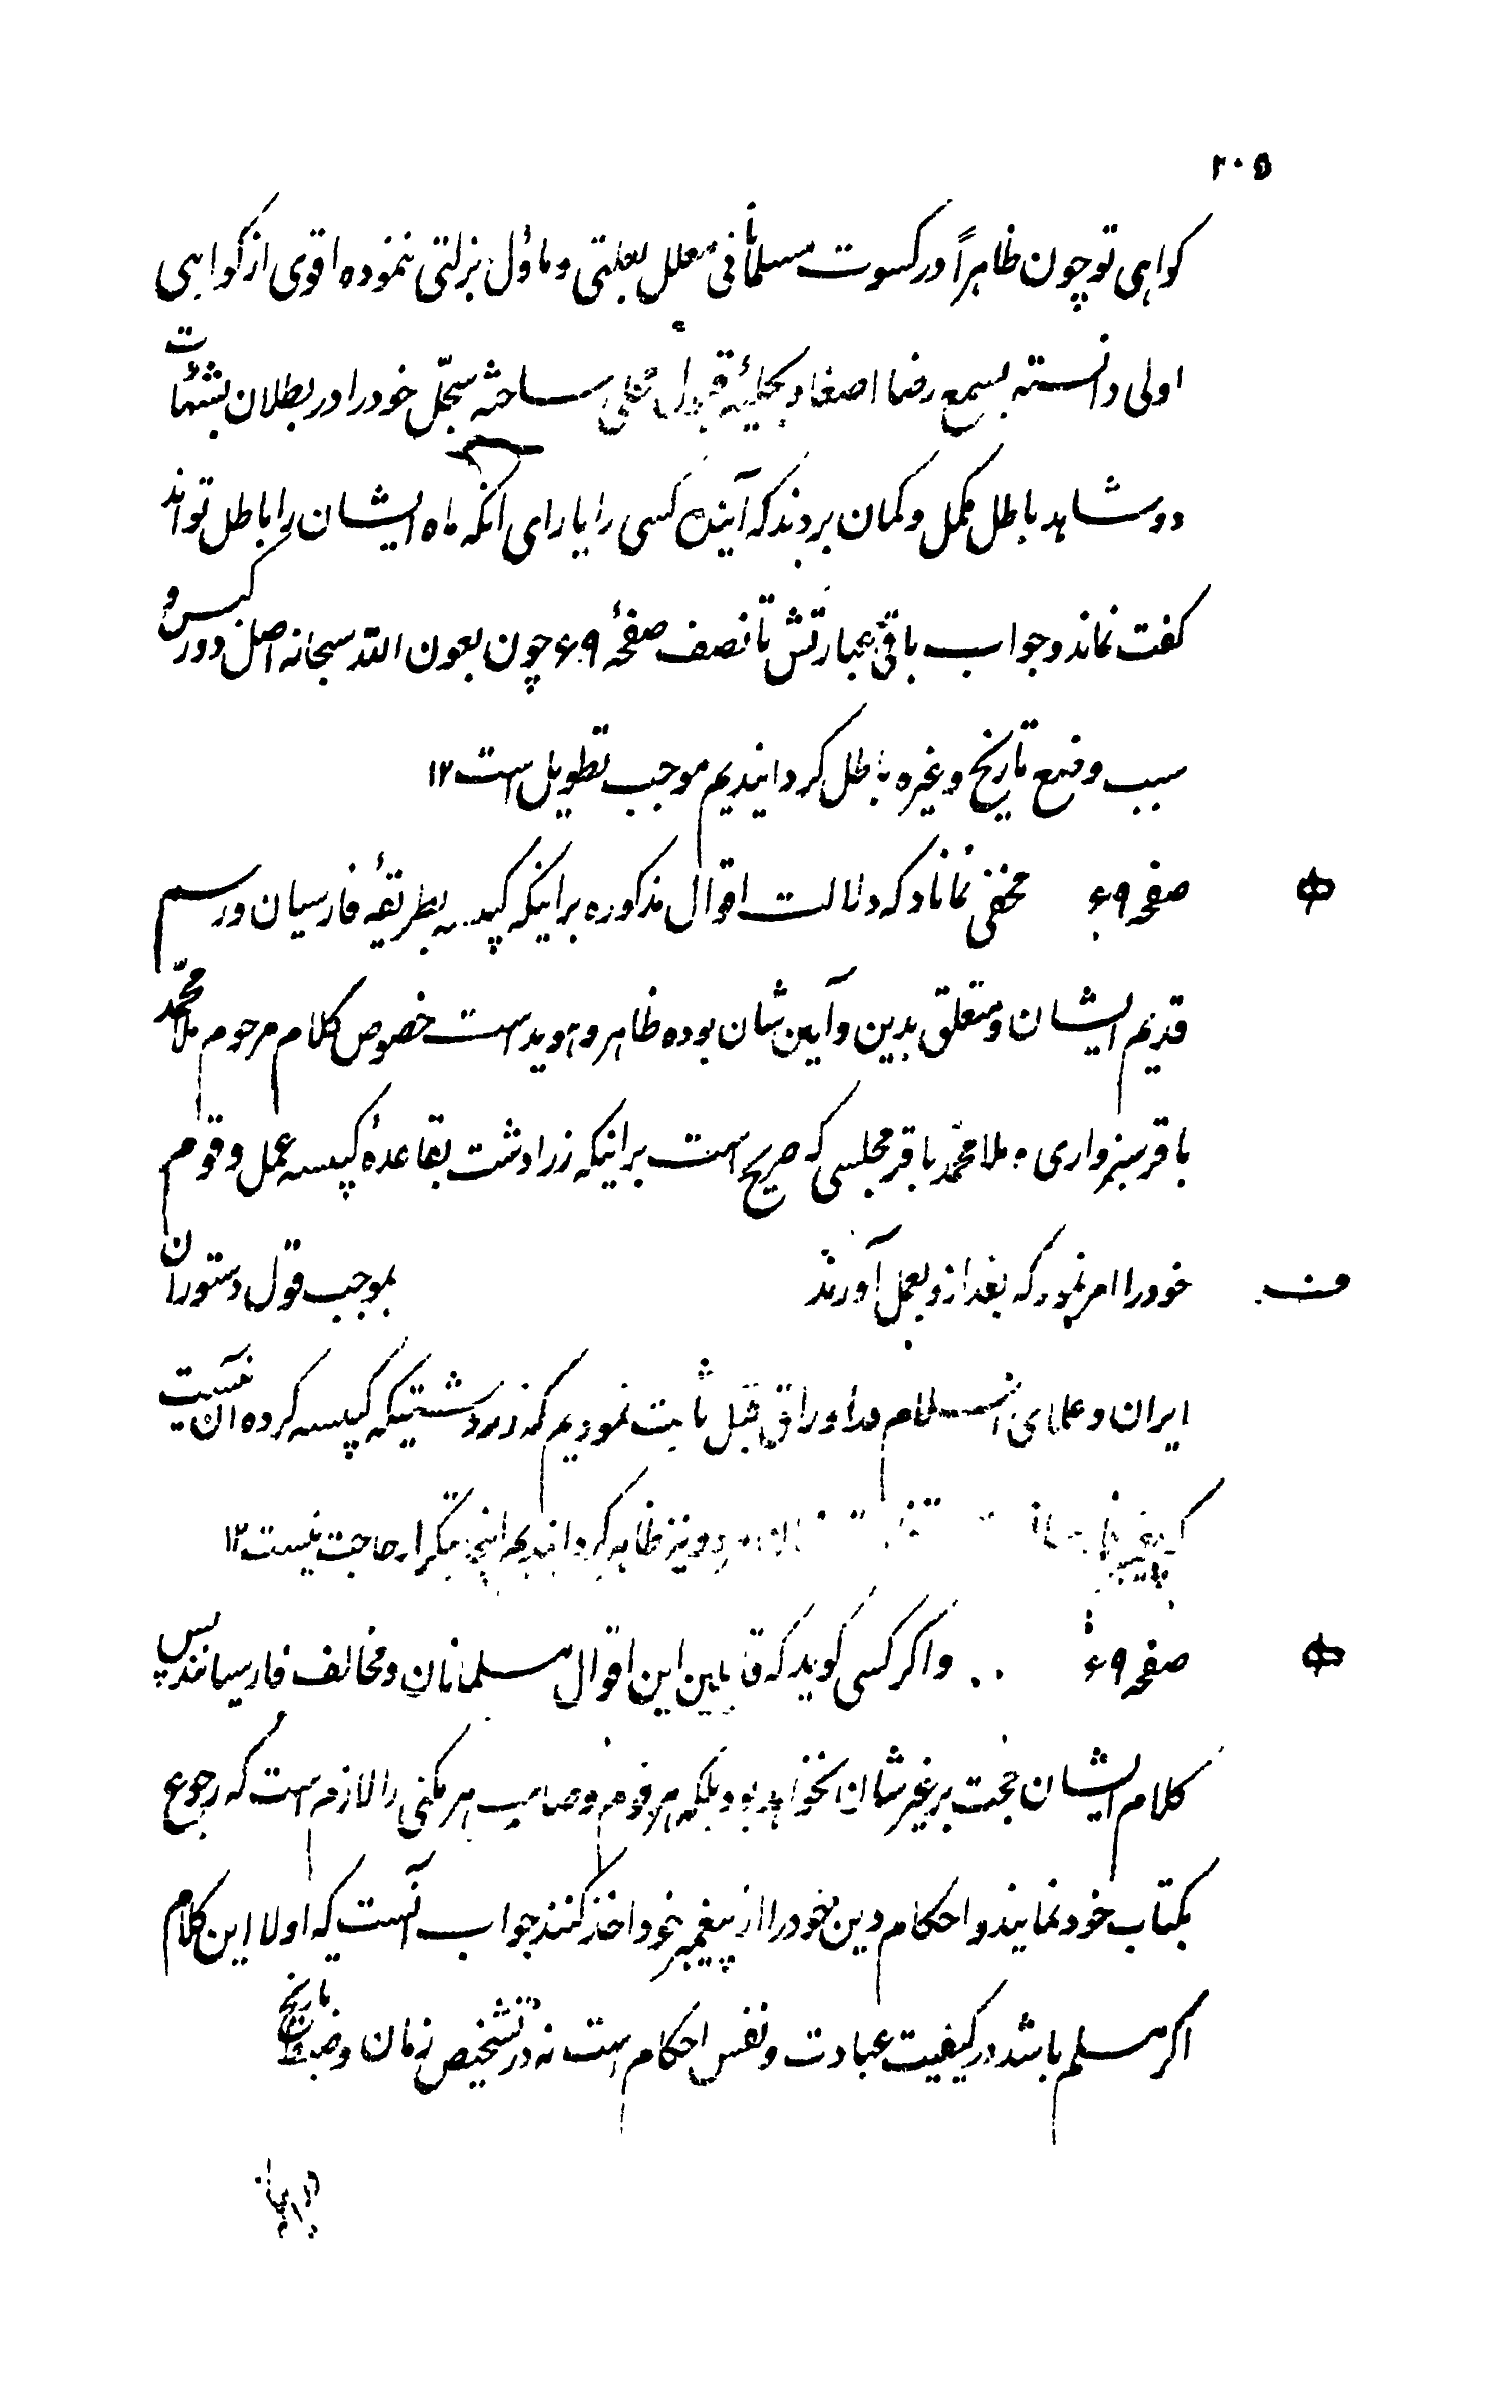 ۲۰۵
کواهی تو چون ظاهراً در کسوت مسلمانی معلل بعلتی و ماؤل بزلتی ننموده اقوی از کواهی
اولی دانسته بسمع رضا اصغا و بحلیهٔ قبول محلی ساخته سجّل خود را در بطلان بشهات
دو شاهد باطل مکمل و کمان بردند که آینده کسی را یارای انکه ماه ایشان را باطل تواند
کفت نماند و جواب باقی عبارتش تا نصف صفحهٔ ۶۹ چون بعون الله سبحانه اصل دور کبس و
سبب وضع تاریخ و غیره باطل کردانیدیم موجب تطویل است ۱۲
ف صفحه ۶۹ مخفی نماناد که دلالت اقوال مذکوره برانیکه کبیسه بطریقهٔ فارسیان و رسم
قدیم ایشان و متعلق بدین و آیین شان بوده ظاهر و هویداست خصوص کلام مرحوم ملا محمّد
باقر سبزواری و ملا محمّد باقر مجلسی که صریح است برانیکه زرادشت بقاعدهٔ کبیسه عمل و قوم
خود را امر نمود که بعد از و بعمل آورند بموجب قول دستوران
ایران و علمای اسلام در اوراق قبل ثابت نمودیم که زردشتیکه کبیسه کرده آن نیست
که پیغمبر و نیز ظاهر کردانیدیم تکرار حاجت نیست ۱۲
ف صفحه ۶۹ و اکر کسی کوید که قایلین این اقوال مسلمانان و مخالف فارسیانند پس
کلام ایشان حجت بر غیر شان نخواهد بود بلکه هر قوم و صاحب هر را لازم است که رجوع
بکتاب خود نمایند و احکام دین خود را از پیغمبر خود اخذ کنند جواب آنست که اولا این کلام
اکر مسلم باشد در کیفیت عبادت و نفس احکام است نه در تشخیص زمان و ضبط تاریخ